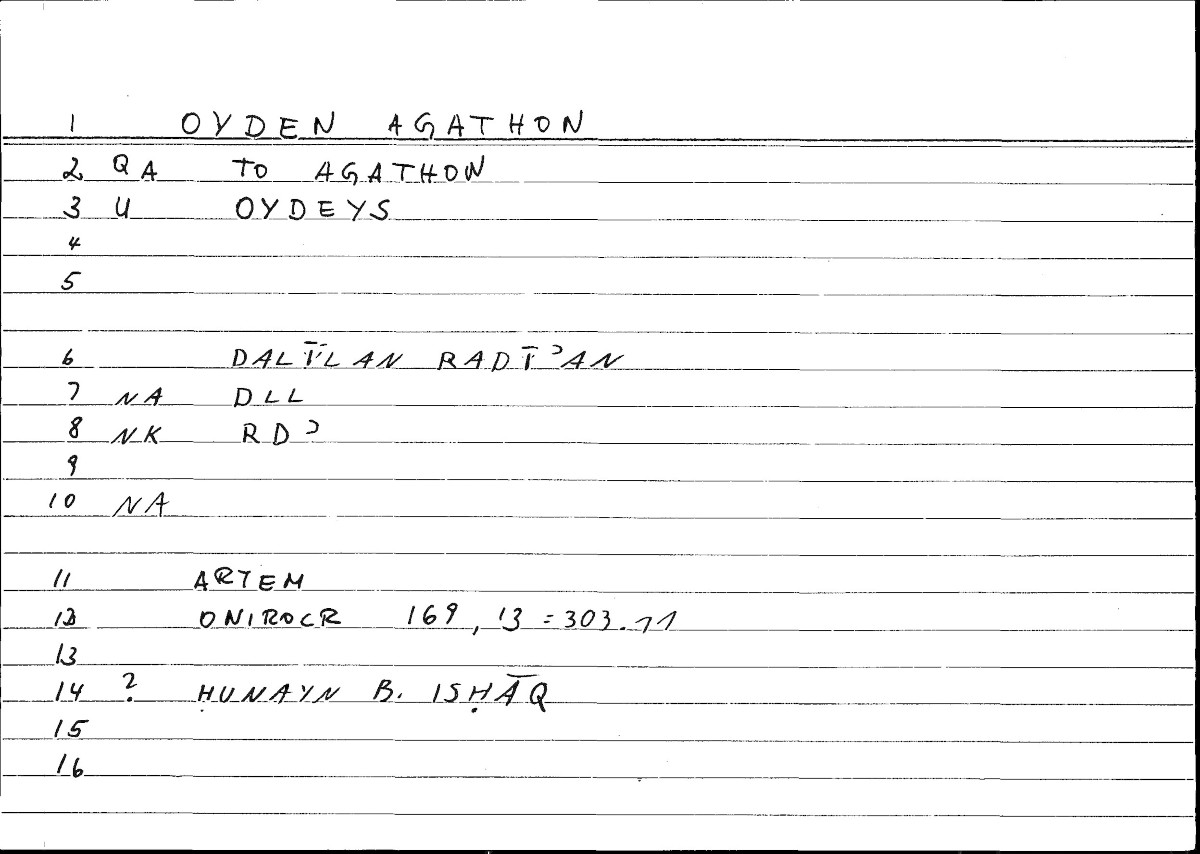 1 OYDEN AGATHON
2 QA TO AGATHON
3 U OYDEYS
4
5
6 DALĪLAN RADĪʾAN
7 NA DLL
8 NK RDʾ
9
10 NA
11 ARTEM
12 ONIROCR 169, 13 = 303.11
13
14 ? ḤUNAYN B. ISḤĀQ
15
16